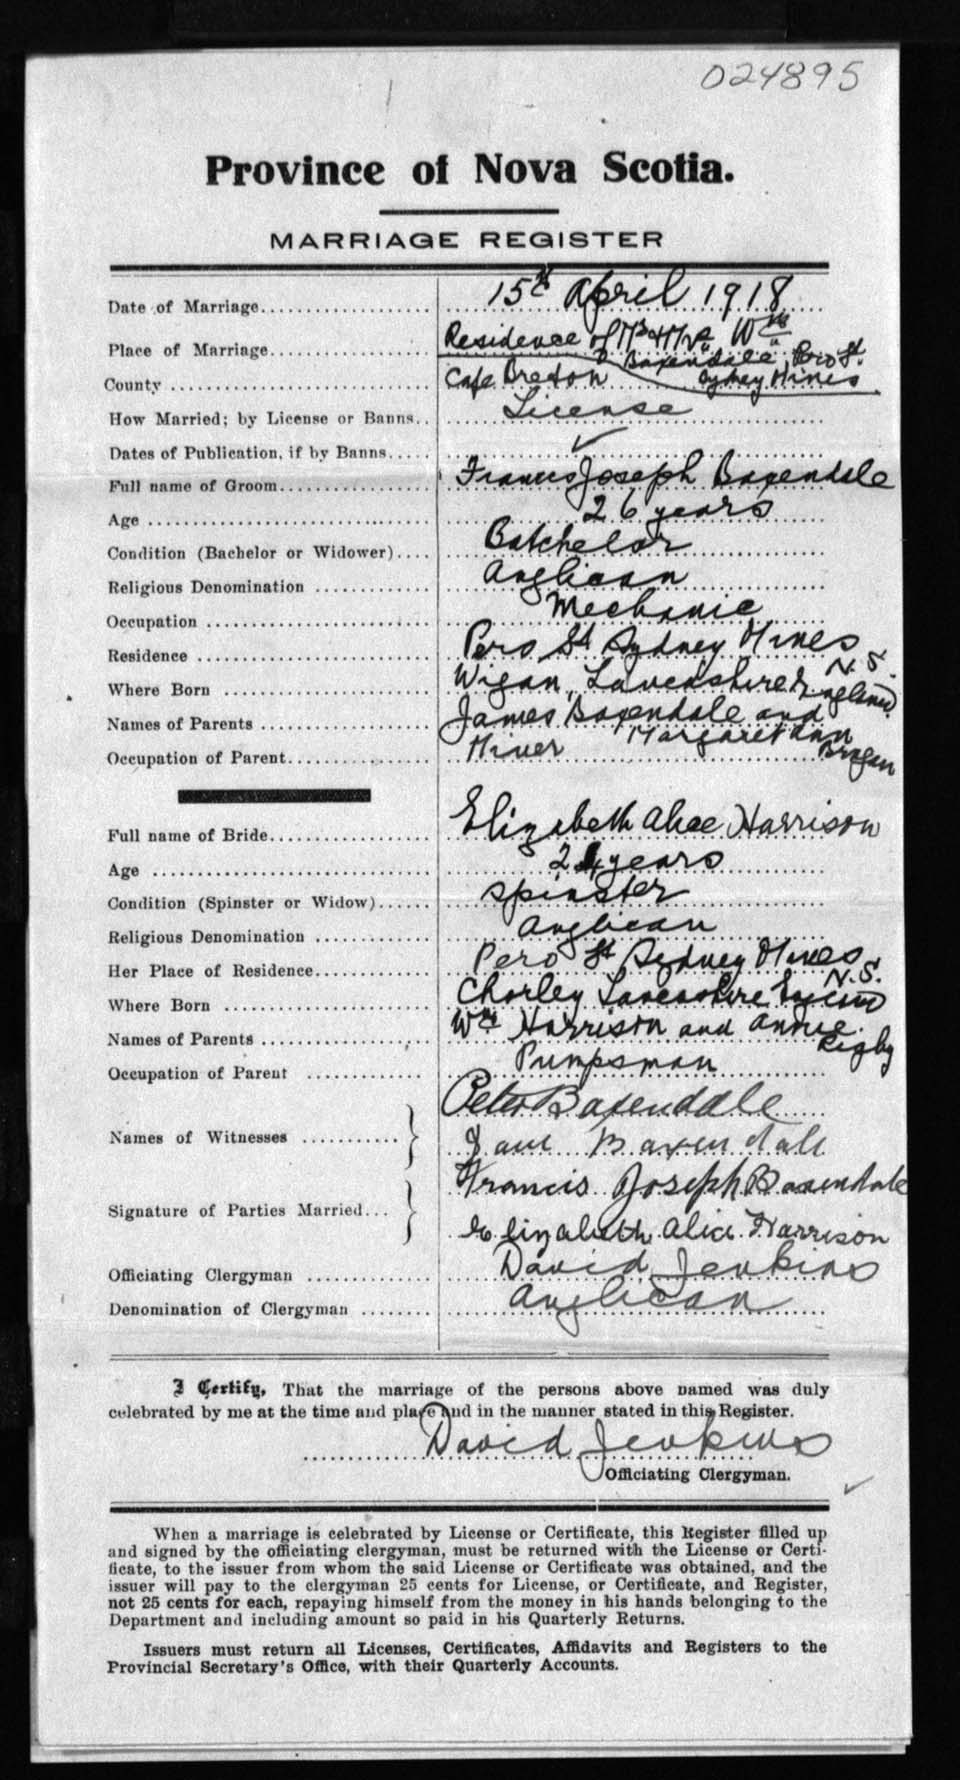 024895
Province of Nova Scotia.
MARRIAGE REGISTER
Date of Marriage 15th April 1918
Place of Marriage Residence of Mr & Mrs Wm
Baxendale, Pero St.
County Cape Breton Sydney Mines
How Married; by License or Banns License
Dates of Publication, if by Banns
Full name of Groom Francis Joseph Baxendale
Age 26 years
Condition (Bachelor or Widower) Batchelor
Religious Denomination Anglican
Occupation Mechanic
Residence Pero St Sydney Mines
N.S.
Where Born Wigan, Lancashire England
Names of Parents James Baxendale and
Margaret Ann
Brogan
Occupation of Parent Miner
Full name of Bride Elizabeth Alice Harrison
Age 24 years
Condition (Spinster or Widow) Spinster
Religious Denomination Anglican
Her Place of Residence Pero St Sydney Mines
N.S.
Where Born Chorley Lancashire England
Names of Parents Wm Harrison and Annie
Rigby
Occupation of Parent Pumpsman
Names of Witnesses Peter Baxendale
Jane Baxendale
Signature of Parties Married Francis Joseph Baxendale
Elizabeth Alice Harrison
Officiating Clergyman David Jenkins
Denomination of Clergyman Anglican
I Certify, That the marriage of the persons above named was duly
celebrated by me at the time and place and in the manner stated in this Register.
David Jenkins
Officiating Clergyman.
When a marriage is celebrated by License or Certificate, this Register filled up
and signed by the officiating clergyman, must be returned with the License or Certi-
ficate, to the issuer from whom the said License or Certificate was obtained, and the
issuer will pay to the clergyman 25 cents for License, or Certificate, and Register,
not 25 cents for each, repaying himself from the money in his hands belonging to the
Department and including amount so paid in his Quarterly Returns.
Issuers must return all Licenses, Certificates, Affidavits and Registers to the
Provincial Secretary's Office, with their Quarterly Accounts.